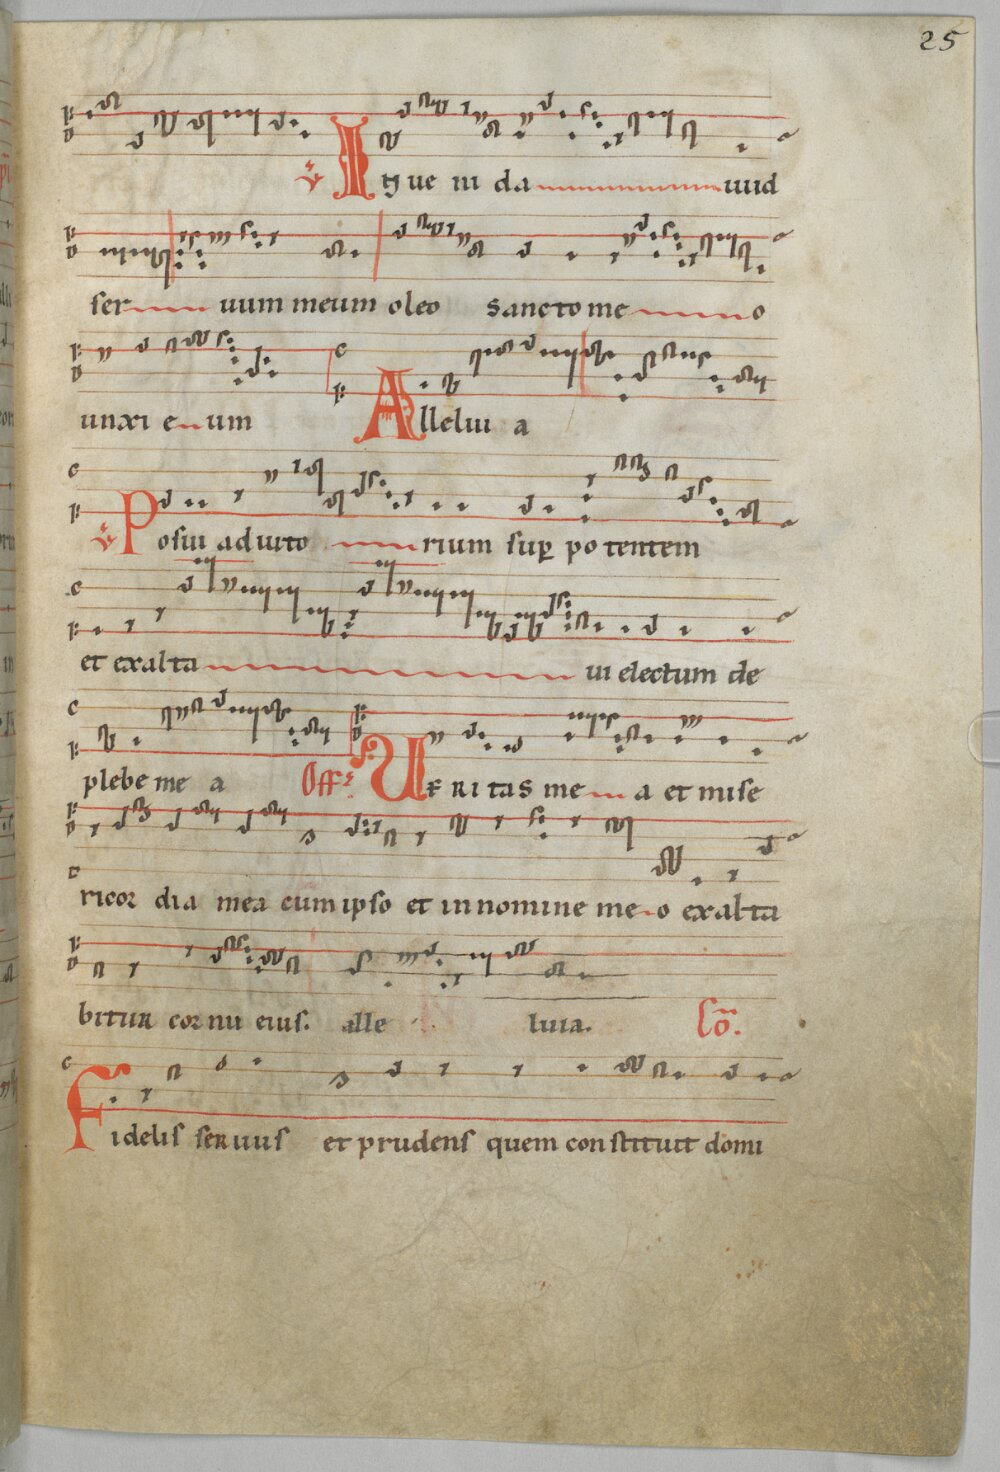 25
℣ Inue ni da uud
ser uum meum oleo sancto me o
unxi e um Alleluu a
℣ Posui adiuto rium sup potentem
et exalta ui electum de
plebe me a Off Ueritas me a et mise
ricor dia mea cum ipso et in nomine me o exalta
bitur cornu eius. alle luia. Co.
Fidelis seruus et prudens quem constituit domi